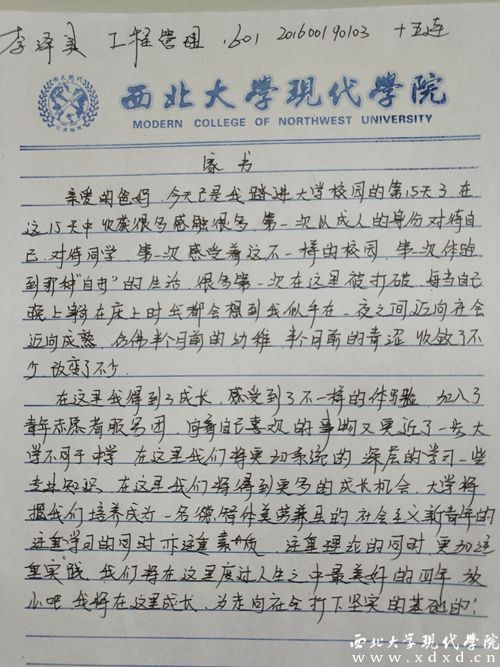 李泽美 工程管理 1601 201600190103 十五连
西北大学现代學院
MODERN COLLEGE OF NORTHWEST UNIVERSITY
家书
亲爱的爸妈，今天已是我踏进大学校园的第15天了，在
这15天中收获很多感触很多，第一次以成人的身份对待自
己，对待同学，第一次感受着这不一样的校园，第一次体验
到那种"自由"的生活，很多第一次在这里被打破，每当自己
晚上躺在床上时我都会想到我似乎在一夜之间迈向社会
迈向成熟，仿佛半个月前的幼稚，半个月前的青涩，收敛了不
少，改变了不少。
在这里我得到了成长，感受到了不一样的体验，加入了
青年志愿者服务团，向着自己喜欢的事物又更近了一步，大
学不同于中学，在这里我们将更加系统的深层的学习一些
专业知识，在这里我们将得到更多的成长机会，大学将
把我们培养成为一名德智体美劳兼具的社会主义新青年的
注重学习的同时亦注重素质，注重理论的同时，更加注
重实践，我们将在这里度过人生之中最美好的四年，放
心吧，我将在这里成长，为走向社会打下坚实的基础的！
西北大学现代學院
www.xdxd.cn